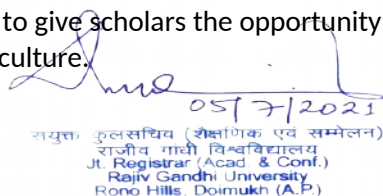 to give scholars the opportunity
culture.
05/7/2021
सयुक्त कुलसचिव (शैक्षणिक एवं सम्मेलन)
राजीव गांधी विश्वविद्यालय
Jt. Registrar (Acad. & Conf.)
Rajiv Gandhi University
Rono Hills, Doimukh (A.P.)